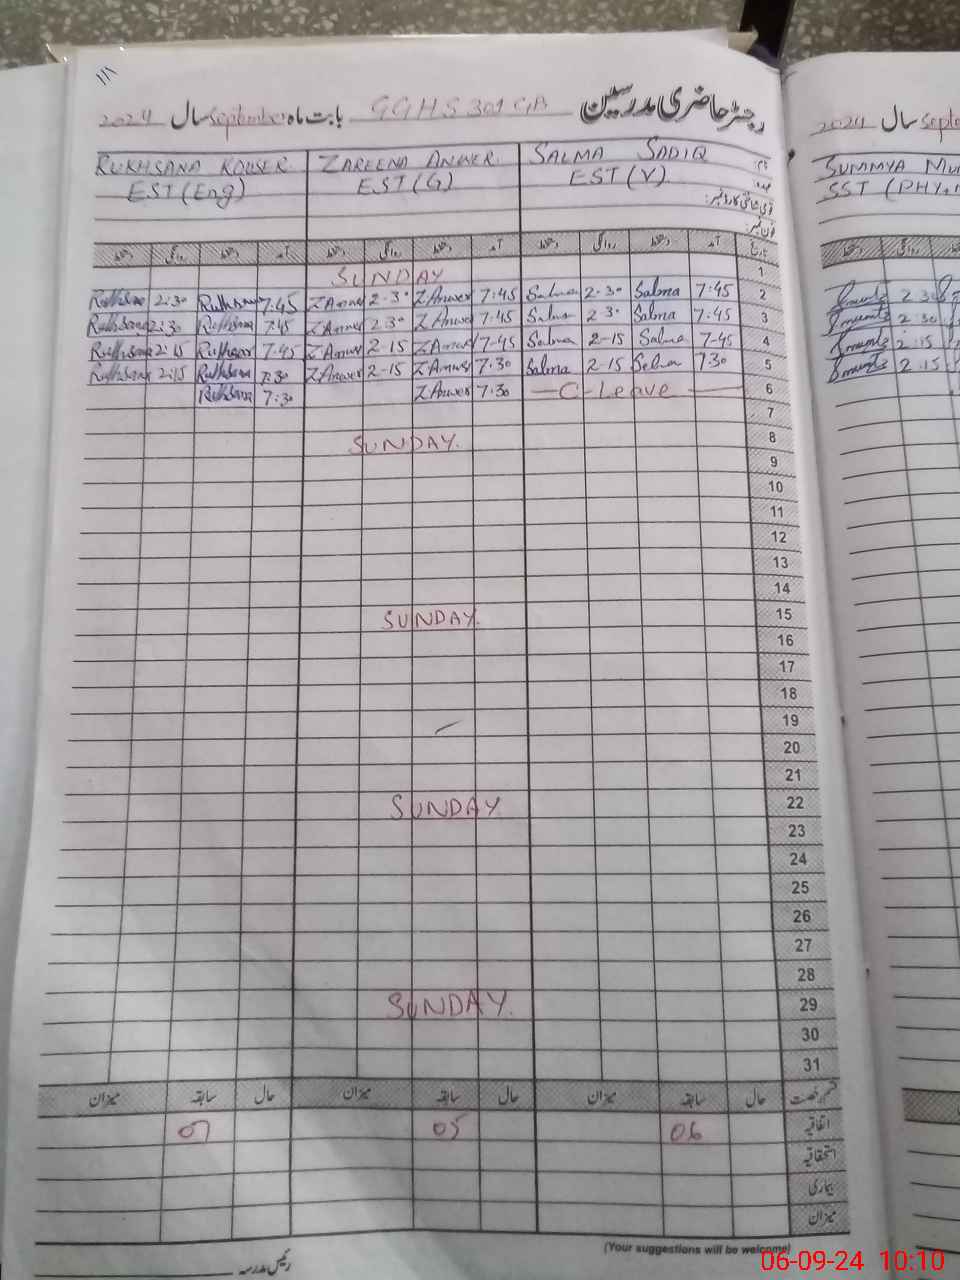 ۱۱۱
رجسٹر حاضری مدرسین GGHS 301 GB بابت ماہ September سال 2024
نام RUKHSANA KOUSER ZAREENA ANWER SALMA SADIQ
عہدہ EST (Eng) EST (G) EST (V)
قومی شناختی کارڈ نمبر:
فون نمبر:
دستخط روانگی دستخط آمد دستخط روانگی دستخط آمد دستخط روانگی دستخط آمد تاریخ
SUNDAY 1
Rukhsana 2:30 Rukhsana 7:45 Z Anwer 2-30 Z Anwer 7:45 Salma 2-30 Salma 7:45 2
Rukhsana 2:30 Rukhsana 7:45 Z Anwer 2.30 Z Anwer 7:45 Salma 2-30 Salma 7:45 3
Rukhsana 2:15 Rukhsana 7:45 Z Anwer 2-15 Z Anwer 7-45 Salma 2-15 Salma 7-45 4
Rukhsana 2:15 Rukhsana 7:30 Z Anwer 2-15 Z Anwer 7.30 Salma 2-15 Salma 7:30 5
Rukhsana 7:30 Z Anwer 7:30 —C-Leave— 6
7
SUNDAY. 8
9
10
11
12
13
14
SUNDAY. 15
16
17
18
19
20
21
SUNDAY. 22
23
24
25
26
27
28
SUNDAY. 29
30
31
میزان سابقہ حال میزان سابقہ حال میزان سابقہ حال قسم رخصت
07 05 06 اتفاقیہ
استحقاقیہ
بیماری
میزان
رئیس مدرسہ
(Your suggestions will be welcome)
2024 سال
SUMMYA
SST (PHY
2.30
2.30
2.15
2.15
06-09-24 10:10